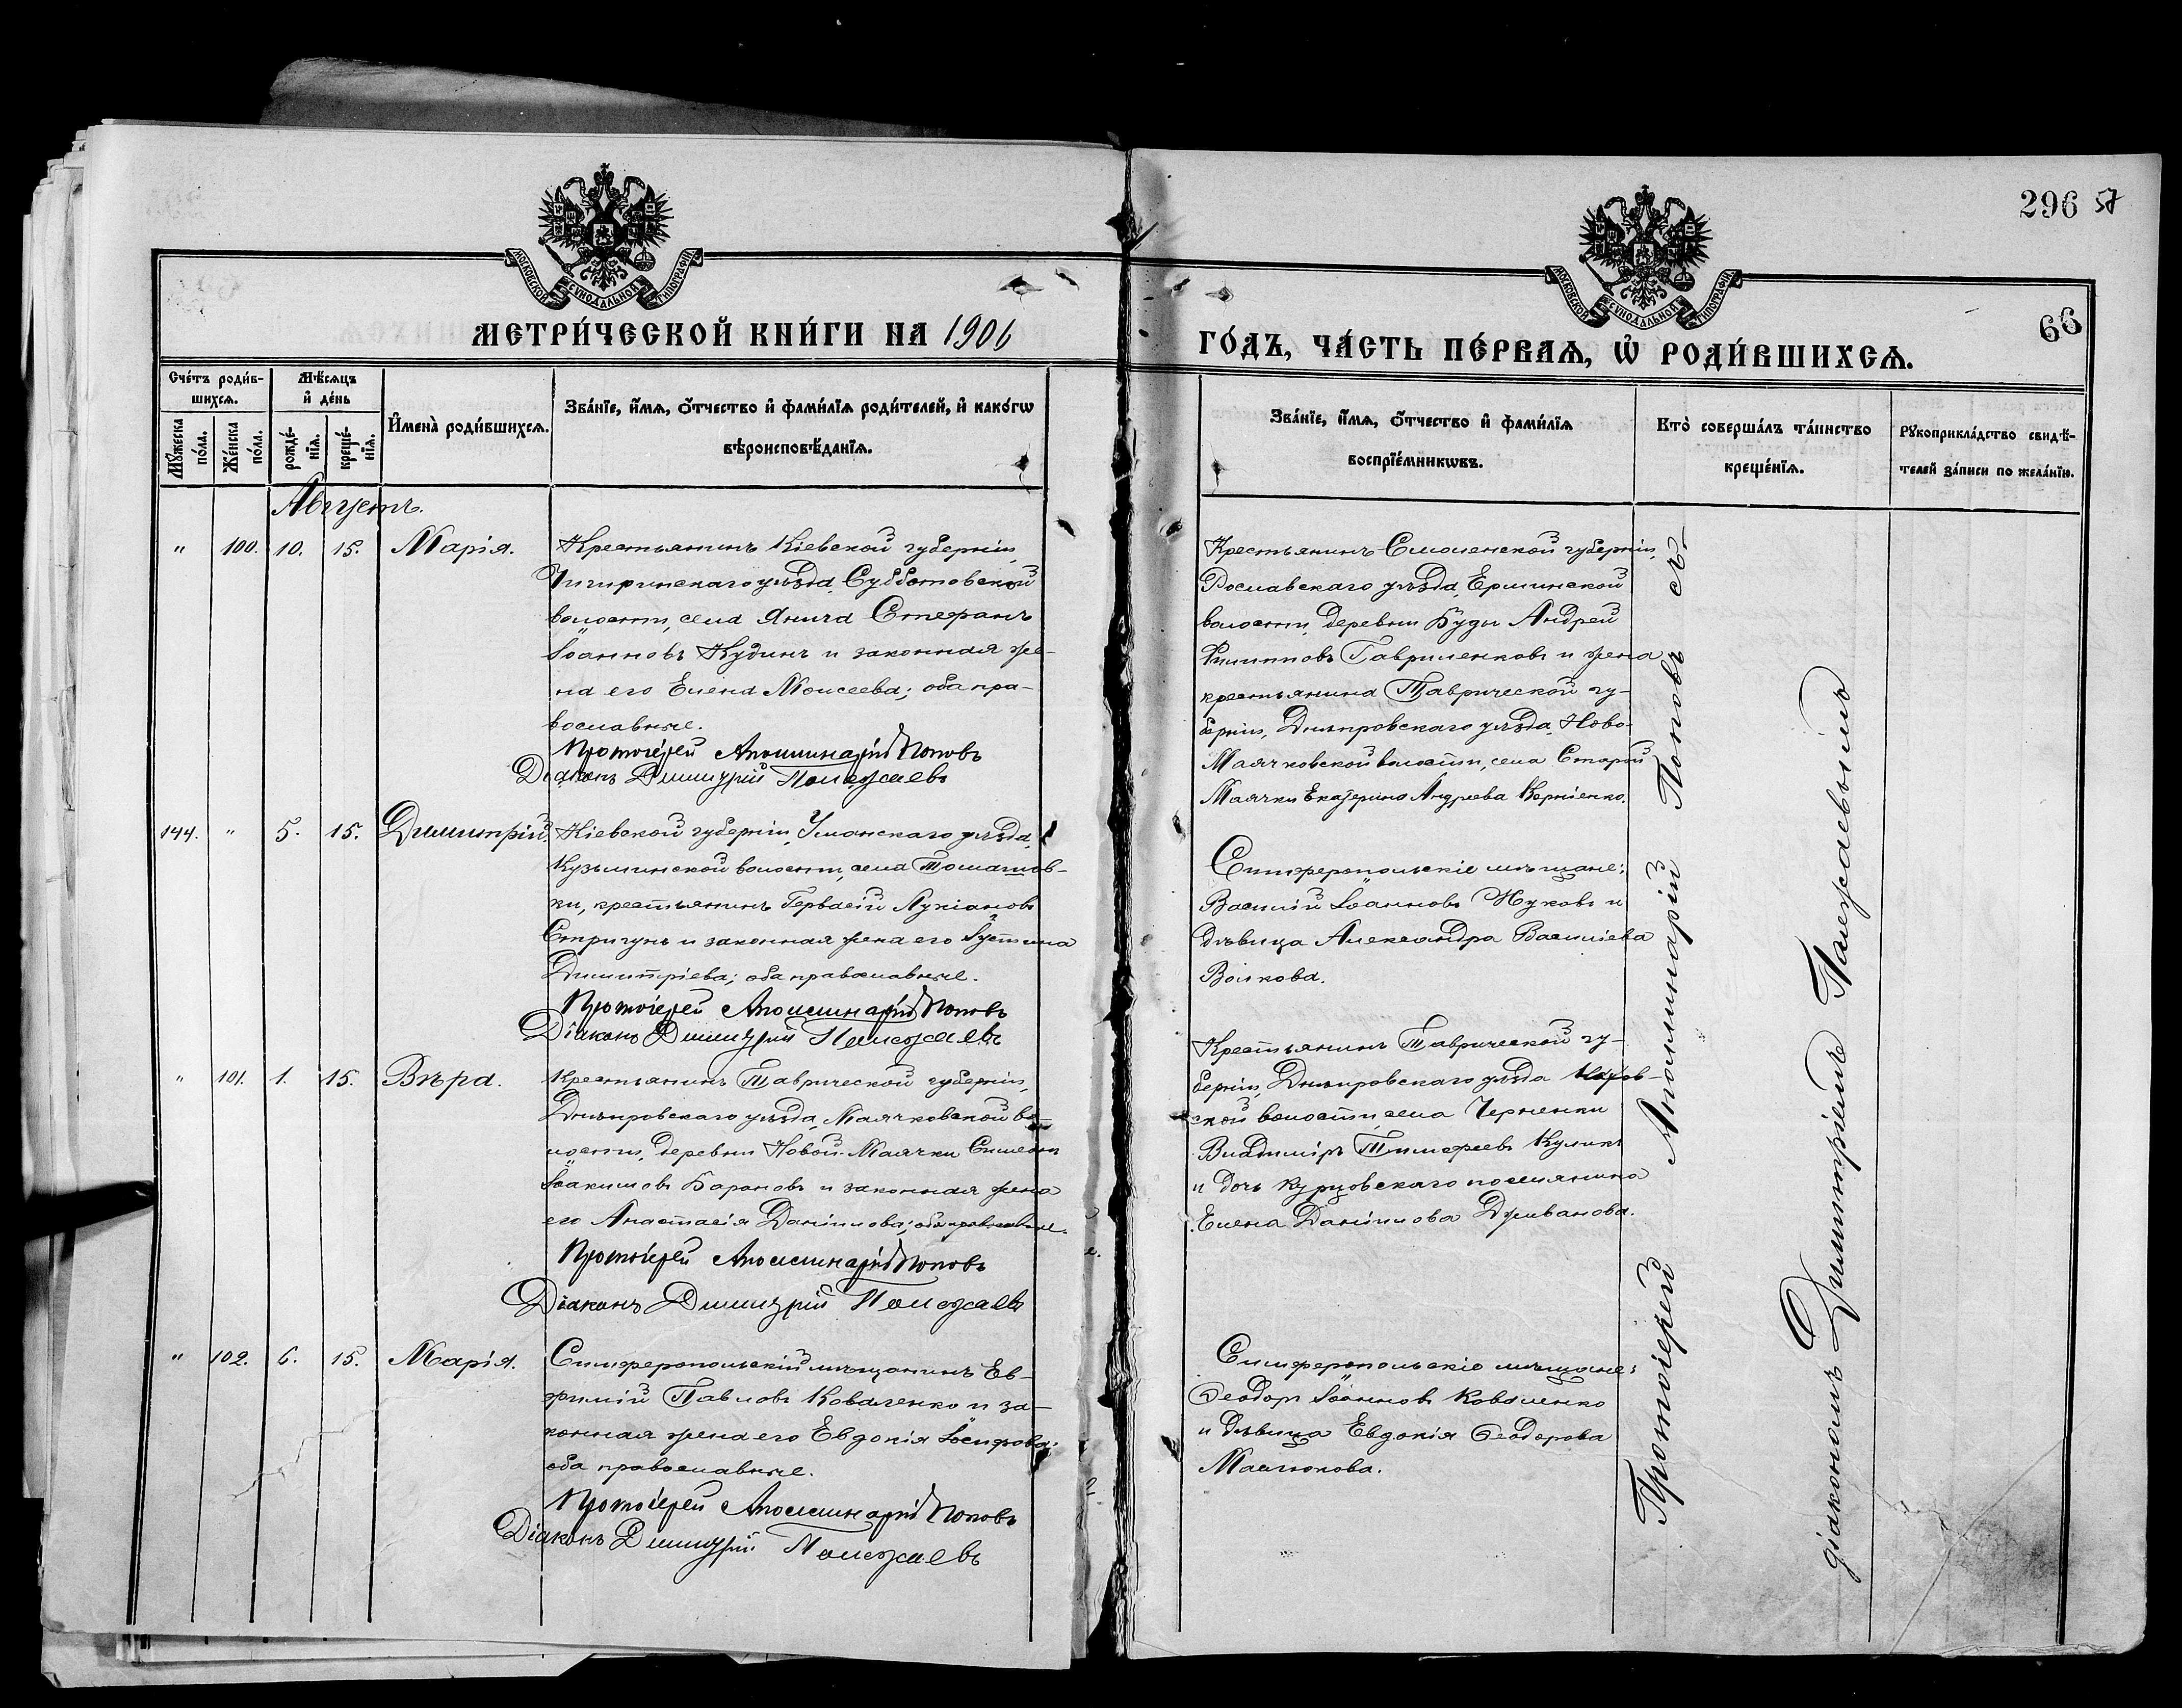 296 57
66
МОСКОВСКОЙ СѴНОДАЛЬНОЙ ТИПОГРАФІИ
МОСКОВСКОЙ СѴНОДАЛЬНОЙ ТИПОГРАФІИ
МЕТРИ́ЧЕСКОЙ КНИ́ГИ НА 1906
ГО́ДЪ, ЧА́СТЬ ПЕ́РВАѦ, Ѽ РОДИ́ВШИХСѦ.
Сче́тъ роди́в-
шихсѧ.
Мѣ́сѧцъ
и҆ де́нь
Мꙋ́жеска
по́ла.
Же́нска
по́ла.
рожде́-
нїѧ.
креще́-
нїѧ.
И҆мена̀ роди́вшихсѧ.
Зва́нїе, и҆́мѧ, ѻ҆́тчество и҆ фами́лїѧ роди́телей, и҆ како́гѡ
вѣроисповѣ́данїѧ.
Зва́нїе, и҆́мѧ, ѻ҆́тчество и҆ фами́лїѧ
воспрїе́мникѡвъ.
Кто̀ соверша́лъ та́инство
креще́нїѧ.
Рꙋкоприкла́дство свидѣ́-
телей за́писи по жела́нїю.
Августъ.
" 100. 10. 15. Марія.
Крестьянинъ Кіевской губерніи,
Чигиринскаго уѣзда, Субботовской
волости, села Янича Стефанъ
Іоанновъ Кудинъ и законная же-
на его Елена Моисеева; оба пра-
вославные.
Протоіерей Аполлинарій Поповъ
Діаконъ Димитрій Полежаевъ
Крестьянинъ Смоленской губерніи,
Рославскаго уѣзда, Ершинской
волости, деревни Буды Андрей
Филипповъ Гавриленковъ и жена
крестьянина Таврической гу-
берніи, Днѣпровскаго уѣзда, Ново-
Маячковской волости, села Старой
Маячки Екатерина Андреева Корніенко.
144. " 5. 15. Димитрій.
Кіевской губерніи, Уманскаго уѣзда,
Кузьминской волости, села Томашов-
ки, крестьянинъ Гервасій Лукіановъ
Стригунъ и законная жена его Іустина
Димитріева; оба православные.
Протоіерей Аполлинарій Поповъ
Діаконъ Димитрій Полежаевъ
Симферопольскіе мѣщане:
Василій Іоанновъ Жуковъ и
дѣвица Александра Василіева
Волкова.
" 101. 1. 15. Вѣра.
Крестьянинъ Таврической губерніи,
Днѣпровскаго уѣзда, Маячковской во-
лости, деревни Новой-Маячки Симеонъ
Іоакимовъ Барановъ и законная жена
его Анастасія Даніилова; оба православные.
Протоіерей Аполлинарій Поповъ
Діаконъ Димитрій Полежаевъ
Крестьянинъ Таврической гу-
берніи, Днѣпровскаго уѣзда Кахов-
ской волости, села Черненки
Владиміръ Тимофеевъ Куликъ
и дочь Курцовскаго поселянина
Елена Даніилова Дживанова.
" 102. 6. 15. Марія.
Симферопольскій мѣщанинъ Ев-
фимій Павловъ Коваленко и за-
конная жена его Евдокія Іосифова;
оба православные.
Протоіерей Аполлинарій Поповъ
Діаконъ Димитрій Полежаевъ
Симферопольскіе мѣщане:
Ѳеодоръ Іоанновъ Коваленко
и дѣвица Евдокія Ѳеодорова
Маслюкова.
Протоіерей Аполлинарій Поповъ съ
діакономъ Димитріемъ Полежаевымъ